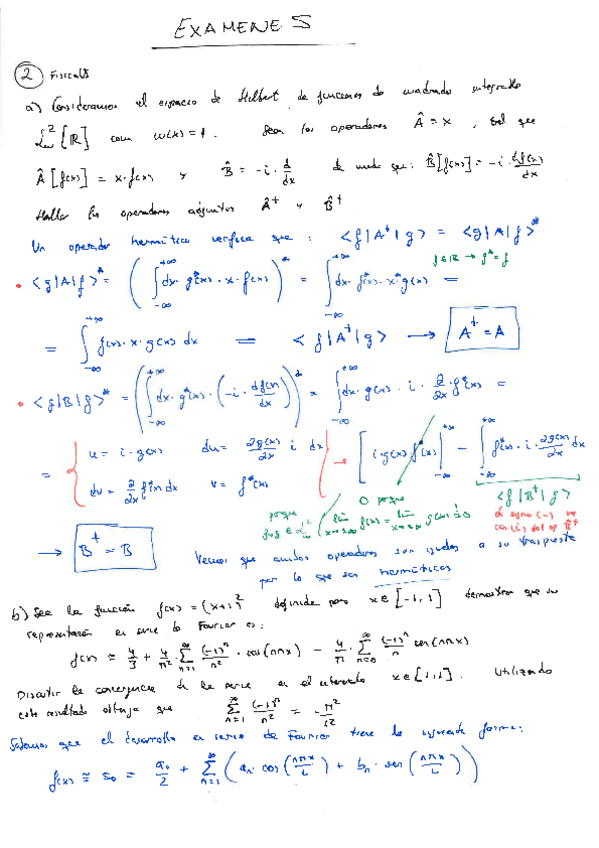 EXAMENES
2 Físicas
a) Consideramos el espacio de Hilbert de funciones de cuadrado integrable
L²w [ℝ] con w(x)=1. Sean los operadores Â = x, tal que
Â[f(x)] = x·f(x) y B̂ = -i·d/dx de modo que: B̂[f(x)] = -i·df(x)/dx
Hallar los operadores adjuntos Â† y B̂†
Un operador hermítico verifica que: <f|A†|g> = <g|A|f>*
f∈ℝ → f*=f
• <g|A|f>* = (∫_{-∞}^{+∞} dx·g*(x)·x·f(x))* = ∫_{-∞}^{+∞} dx·f*(x)·x·g(x) =
= ∫_{-∞}^{+∞} f(x)·x·g(x) dx = <f|A†|g> → A† = A
• <g|B|f>* = (∫_{-∞}^{+∞} dx·g*(x)·(-i·df(x)/dx))* = ∫_{-∞}^{+∞} dx·g(x)·i·∂/∂x·f*(x) =
= { u = i·g(x) du = ∂g(x)/∂x i dx } → [i·g(x)f*(x)]_{-∞}^{+∞} - ∫_{-∞}^{+∞} f*(x)·i·∂g(x)/∂x dx
dv = ∂/∂x f*(x) dx v = f*(x)
0 porque
<f|B†|g>
porque f,g ∈ L²w (lím x→±∞ f(x) = lím x→±∞ g(x) = 0
el signo (-) va con la i del op B†
→ B† = B Vemos que ambos operadores son iguales a su traspuesta
por lo que son hermíticos
b) Sea la función f(x) = (x+1)² definida para x∈[-1,1] demostrar que su
representación en serie de Fourier es:
f(x) ≅ 4/3 + 4/π² ∑_{n=1}^{∞} (-1)ⁿ/n² · cos(nπx) - 4/π · ∑_{n=0}^{∞} (-1)ⁿ/n sen(nπx)
Discutir la convergencia de la serie en el intervalo x∈[-1,1]. Utilizando
este resultado obtenga que ∑_{n=1}^{∞} (-1)ⁿ/n² = -π²/12
Sabemos que el desarrollo en serie de Fourier tiene la siguiente forma:
f(x) ≅ = a₀/2 + ∑_{n=1}^{∞} (aₙ·cos(nπx/L) + bₙ·sen(nπx/L))